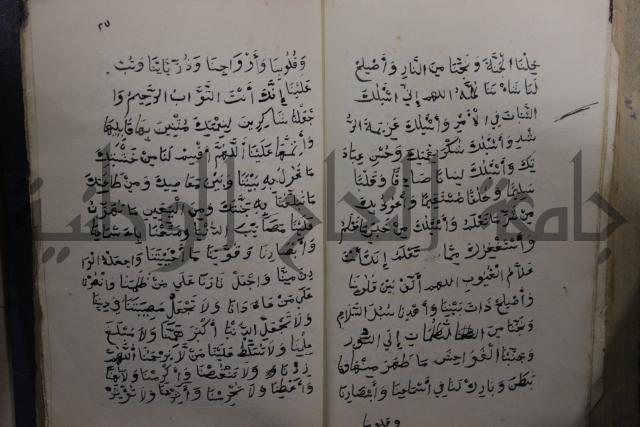 خلنا الجنة ونجنا من النار وأصلح
لنا شاننا كله اللهم إني أسئلك
الثبات في الأمر وأسئلك عزيمة الر
شد وأسئلك شكر نعمتك وحسن عباد
تك وأسئلك لسانا صادقا وقلبا
سليما وخلقا مستقيما وأعوذ بك
من شر ما تعلم وأسئلك من خير ما تعلم
وأستغفرك مما تعلم إنك أنت
علام الغيوب اللهم ألف بين قلوبنا
وأصلح ذات بيننا وأهدنا سبل السلام
ونجنا من الظلمات إلى النور
وجنبنا الفواحش ما ظهر منها وما
بطن وبارك لنا في أسماعنا وأبصارنا
وقلوبنا
٢٧
وقلوبنا وأزواجنا وذرياتنا وتب
علينا إنك أنت التواب الرحيم وا
جعلنا شاكرين لنعمتك مثنين بها قابليها
وأتمها علينا اللهم أقسم لنا من خشيتك
ما تحول به بيننا وبين معاصيك ومن طاعتك
ما تبلغنا به جنتك ومن اليقين ما تهون
علينا مصائب الدنيا ومتعنا بأسماعنا
وأبصارنا وقوتنا ما أحييتنا واجعله الوا
رث منا واجعل ثارنا على من ظلمنا وانصرنا
على من عادانا ولا تجعل مصيبتنا في ديننا
ولا تجعل الدنيا أكبر همنا ولا مبلغ
علمنا ولا تسلط علينا من لا يرحمنا اللهم
زدنا ولا تنقصنا وأكرمنا ولا تهنا
وأعطنا ولا تحرمنا وآثرنا ولا تؤثر
جامعة النجاح الوطنية